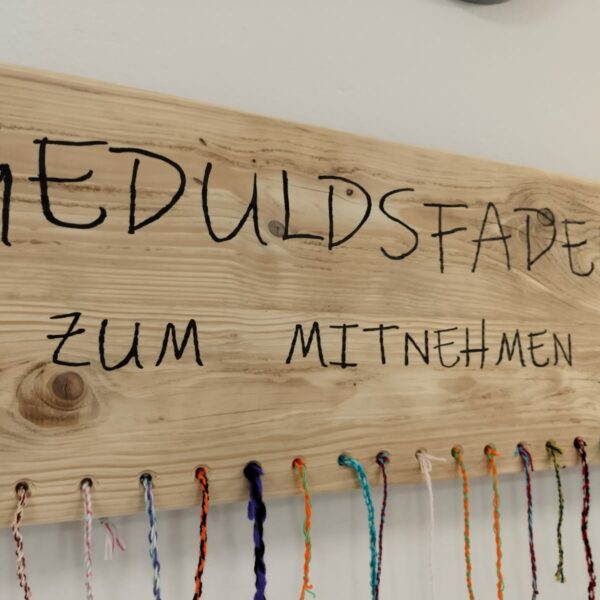 GEDULDSFADE
ZUM MITNEHMEN